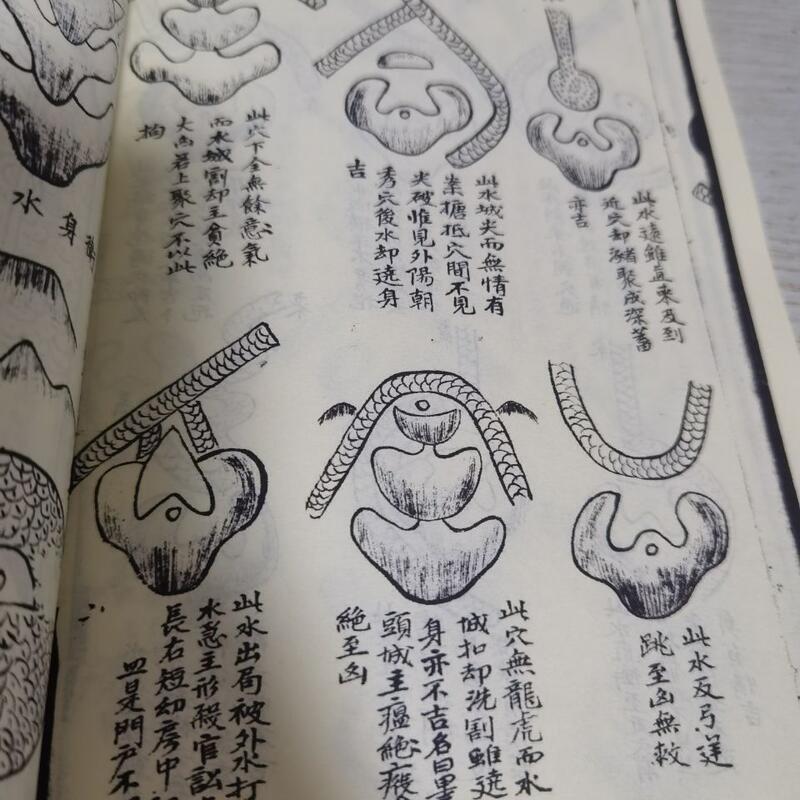 此水遠雖直來及到
近穴却豬聚成深蓄
亦吉
此水城尖而無情有
案搪抵穴間不見
尖破惟見外陽朝
秀穴後水却遶身
吉
此穴下全無餘意氣
而水城割却主貧絕
大而若上聚穴不以此
拘
此水反弓逆
跳至凶無救
此穴無龍虎而水
城扣却洗割雖遶
身亦不吉名曰裹
頭城主瘟絕癈
絕至凶
此水出局被外水打
水急主形殺官訟
長右短幼房中
皿是門戶不
身水